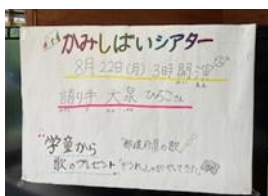 かみしばいシアター
8月22日(月) 3時開演
語り手 大泉 ひろこさん
学童から "都道府県の歌"
歌のプレゼント